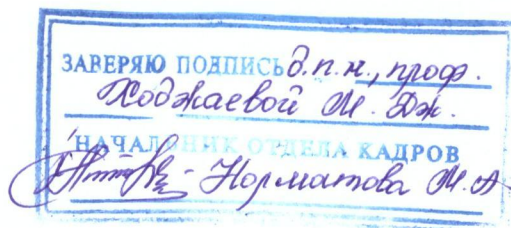 ЗАВЕРЯЮ ПОДПИСЬ д.п.н., проф.
Ходжаевой М. Дж.
НАЧАЛЬНИК ОТДЕЛА КАДРОВ
Норматова М. А